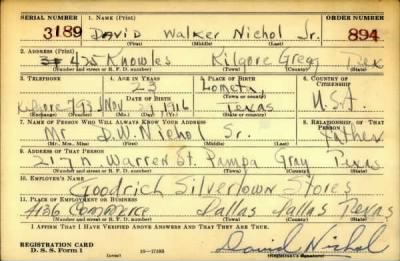 SERIAL NUMBER 1. Name (Print) ORDER NUMBER
3189 David Walker Nichol Jr. 894
(First) (Middle) (Last)
2. Address (Print)
435 Knowles Kilgore Gregg Tex
(Number and street or R. F. D. number) (Town) (County) (State)
3. Telephone 4. Age in Years 5. Place of Birth 6. Country of Citizenship
23 Lometa
Date of Birth (Town or county)
Kilgore 793 Nov 21 1916 Texas U.S.A.
(Exchange) (Number) (Mo.) (Day) (Yr.) (State or country)
7. Name of Person Who Will Always Know Your Address 8. Relationship of That Person
Mr D. W. Nichol Sr. Father
(Mr., Mrs., Miss) (First) (Middle) (Last)
9. Address of That Person
217 N. Warren St. Pampa Gray Texas
(Number and street or R. F. D. number) (Town) (County) (State)
10. Employer's Name
Goodrich Silvertown Stores
11. Place of Employment or Business
4136 Commerce Dallas Dallas Texas
(Number and street or R. F. D. number) (Town) (County) (State)
I Affirm That I Have Verified Above Answers and That They Are True.
REGISTRATION CARD
D. S. S. Form 1 (over) David Nichol
(Registrant's signature)